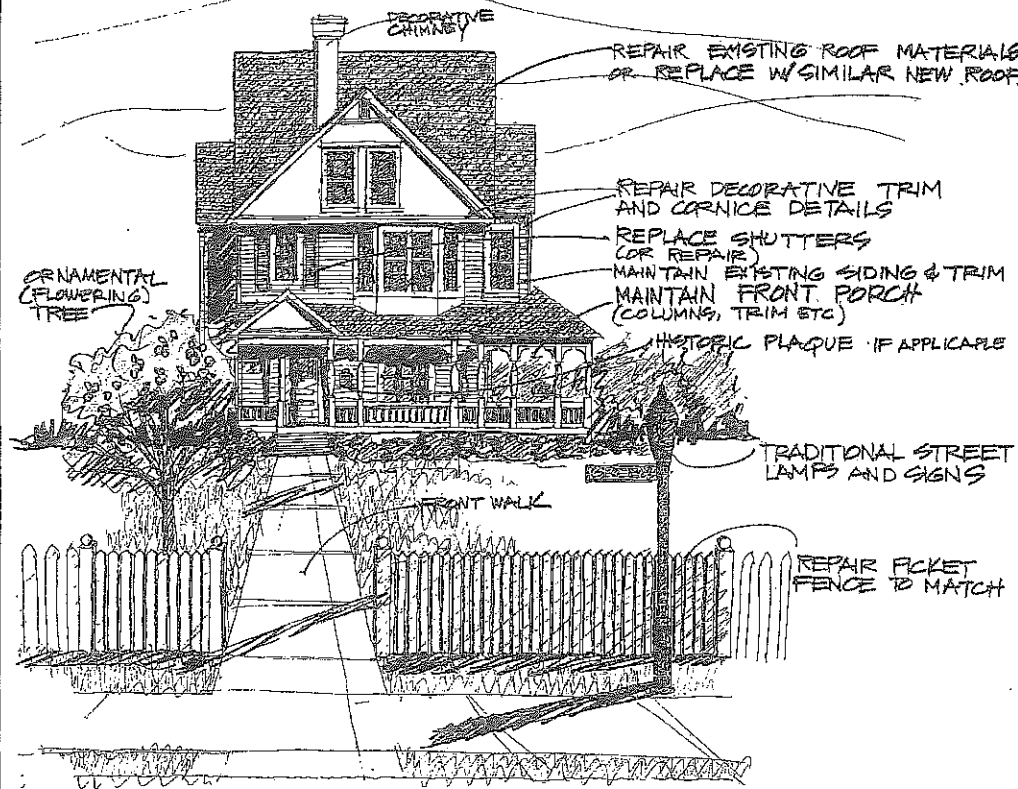 DECORATIVE
CHIMNEY
REPAIR EXISTING ROOF MATERIALS
OR REPLACE W/SIMILAR NEW ROOF
REPAIR DECORATIVE TRIM
AND CORNICE DETAILS
REPLACE SHUTTERS
(OR REPAIR)
MAINTAIN EXISTING SIDING & TRIM
MAINTAIN FRONT PORCH
(COLUMNS, TRIM ETC)
ORNAMENTAL
(FLOWERING)
TREE
HISTORIC PLAQUE IF APPLICABLE
TRADITIONAL STREET
LAMPS AND SIGNS
FRONT WALK
REPAIR PICKET
FENCE TO MATCH